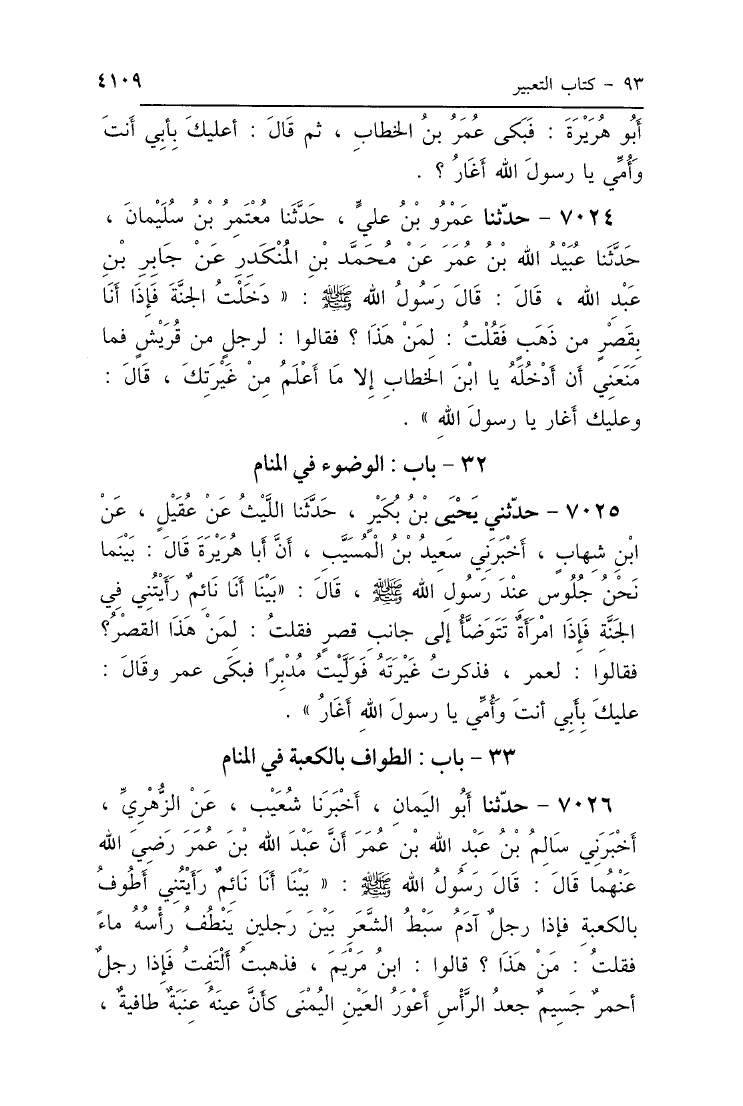 ٩٣ - كتاب التعبير ٤١٠٩
أَبُو هُرَيْرَةَ : فَبَكى عُمَرُ بنُ الخطابِ ، ثم قَالَ : أعليكَ بِأبي أنتَ
وَأُمِّي يا رسولَ الله أغَارُ ؟ .
٧٠٢٤ - حدّثنا عَمْرُو بْنُ عليٍّ ، حَدَّثَنا مُعْتَمِرُ بْنُ سُلَيْمانَ ،
حَدَّثَنَا عُبَيْدُ الله بْنُ عُمَرَ عَنْ مُحَمَّد بْنِ المُنْكَدِرِ عَنْ جَابِرِ بْنِ
عَبْدِ الله ، قَالَ : قَالَ رَسُولُ الله ﷺ : « دَخَلْتُ الجَنَّةَ فَإِذَا أَنَا
بِقَصْرٍ من ذَهَب فَقُلْتُ : لمَنْ هَذَا ؟ فقالوا : لرجلٍ من قُرَيْشٍ فما
مَنَعَنِي أن أَدْخُلَهُ يا ابنَ الخطابِ إلا مَا أَعْلَمُ مِنْ غَيْرَتِكَ ، قَالَ :
وعليك أغار يا رسولَ الله » .
٣٢ - باب : الوضوء في المنام
٧٠٢٥ - حدّثني يَحْيَى بْنُ بُكَيْرٍ ، حَدَّثَنا اللَّيْثُ عَنْ عُقَيْلٍ ، عَنْ
ابْنِ شِهابٍ ، أَخْبَرَنِي سَعِيدُ بْنُ الْمُسَيَّبِ ، أَنَّ أبا هُرَيْرَةَ قَالَ : بَيْنَما
نَحْنُ جُلُوس عِنْدَ رَسُولِ الله ﷺ ، قَالَ : «بَيْنَا أنَا نَائِمٌ رَأَيْتُنِي فِي
الجَنَّةِ فَإِذَا امْرَأَةٌ تَتَوَضَّأُ إلى جانبِ قصرٍ فقلتُ : لمَنْ هَذَا القصرُ؟
فقالوا : لعمر ، فذكرتُ غَيْرَتَهُ فَوَلَّيْتُ مُدْبِرًا فبكَى عمر وقَالَ :
عليكَ بِأَبِي أنتَ وَأُمِّي يا رسولَ اللهِ أغَارُ » .
٣٣ - باب : الطواف بالكعبة في المنام
٧٠٢٦ - حدّثنا أَبُو اليَمان ، أخْبَرَنا شُعَيْب ، عَنْ الزُّهْرِيِّ ،
أخْبَرَنِي سَالِمُ بْنُ عَبْدِ الله بْنِ عُمَرَ أنَّ عَبْدَ الله بْنَ عُمَرَ رَضِيَ الله
عَنْهُما قَالَ : قَالَ رَسُولُ الله ﷺ : « بَيْنَا أنَا نَائِمٌ رَأَيْتُنِي أَطُوفُ
بالكعبةِ فإذا رجلٌ آدَمُ سَبْطُ الشَّعَرِ بَيْنَ رَجلينِ يَنْطُفُ رأسُهُ ماءً
فقلتُ : مَنْ هَذَا ؟ قالوا : ابنُ مَرْيَمَ ، فذهبتُ أَلْتَفِتُ فَإذا رجلٌ
أحمرٌ جَسِيمٌ جعدُ الرَّأْسِ أعْوَرُ العَيْنِ اليُمْنَى كأنَّ عينَهُ عِنَبَةٌ طافيةٌ ،